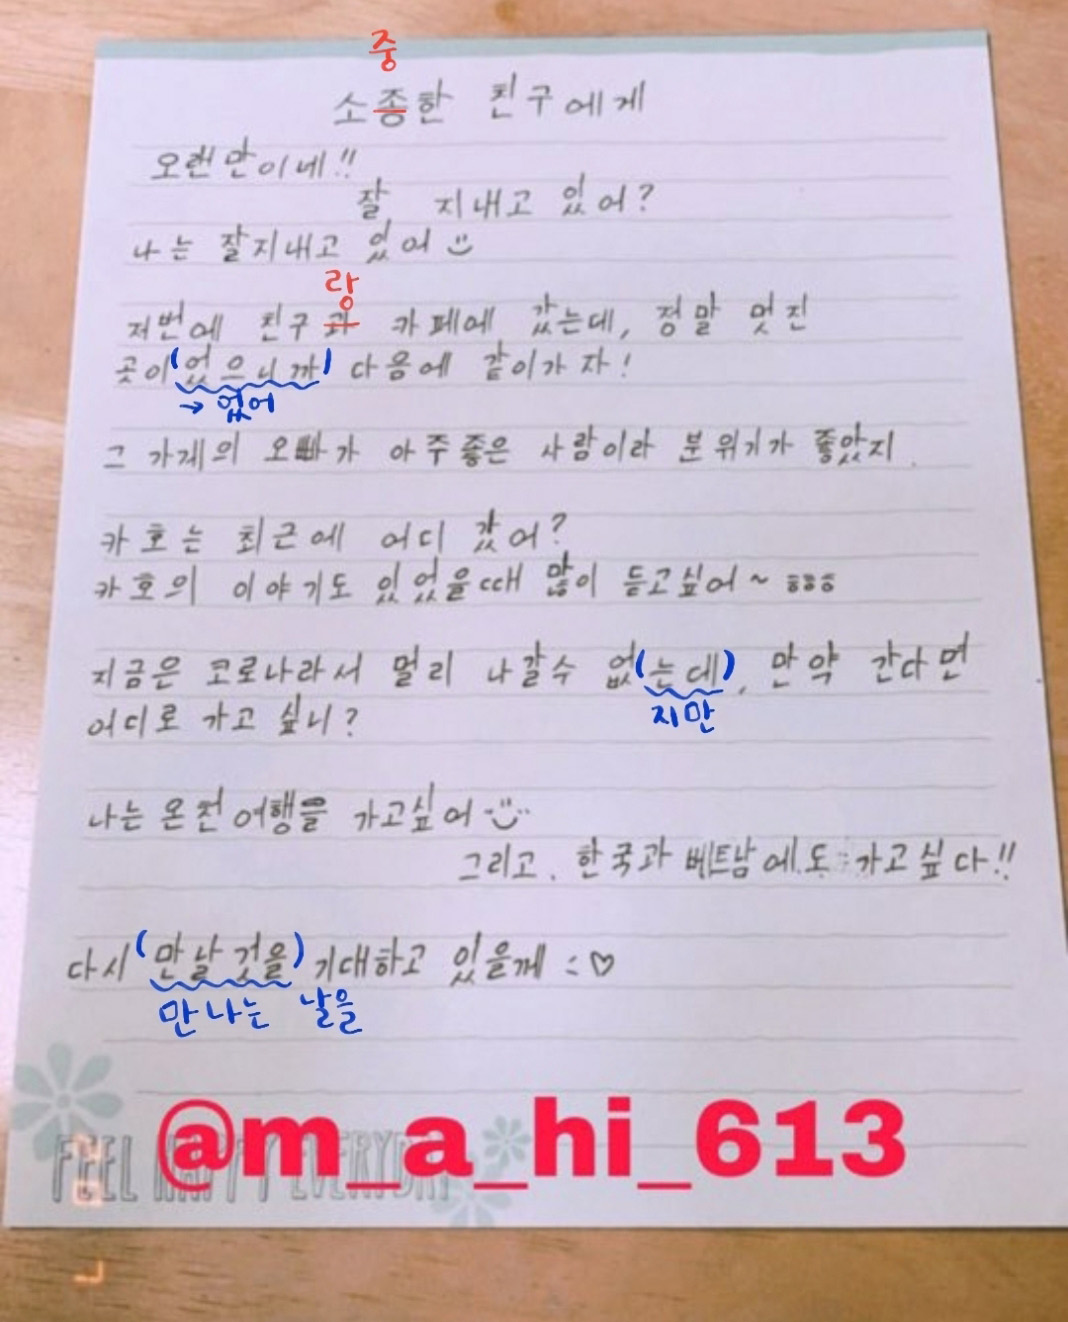 중
소종한 친구에게
오랜만이네!!
잘 지내고 있어?
나는 잘지내고 있어
랑
저번에 친구과 카페에 갔는데, 정말 멋진
곳이(었으니까) 다음에 같이가자!
→ 었어
그 가게의 오빠가 아주좋은 사람이라 분위기가 좋았지.
카호는 최근에 어디 갔어?
카호의 이야기도 있었을때 많이 듣고싶어~ ㅎㅎㅎ
지금은 코로나라서 멀리 나갈수 없(는데), 만약 간다면
지만
어디로 가고 싶니?
나는 온천여행을 가고싶어
그리고. 한국과 베트남에도 가고싶다!!
다시 (만날것을) 기대하고 있을께 ♡
만나는 날을
@m_a_hi_613
FEEL HAPPY EVERYDAY